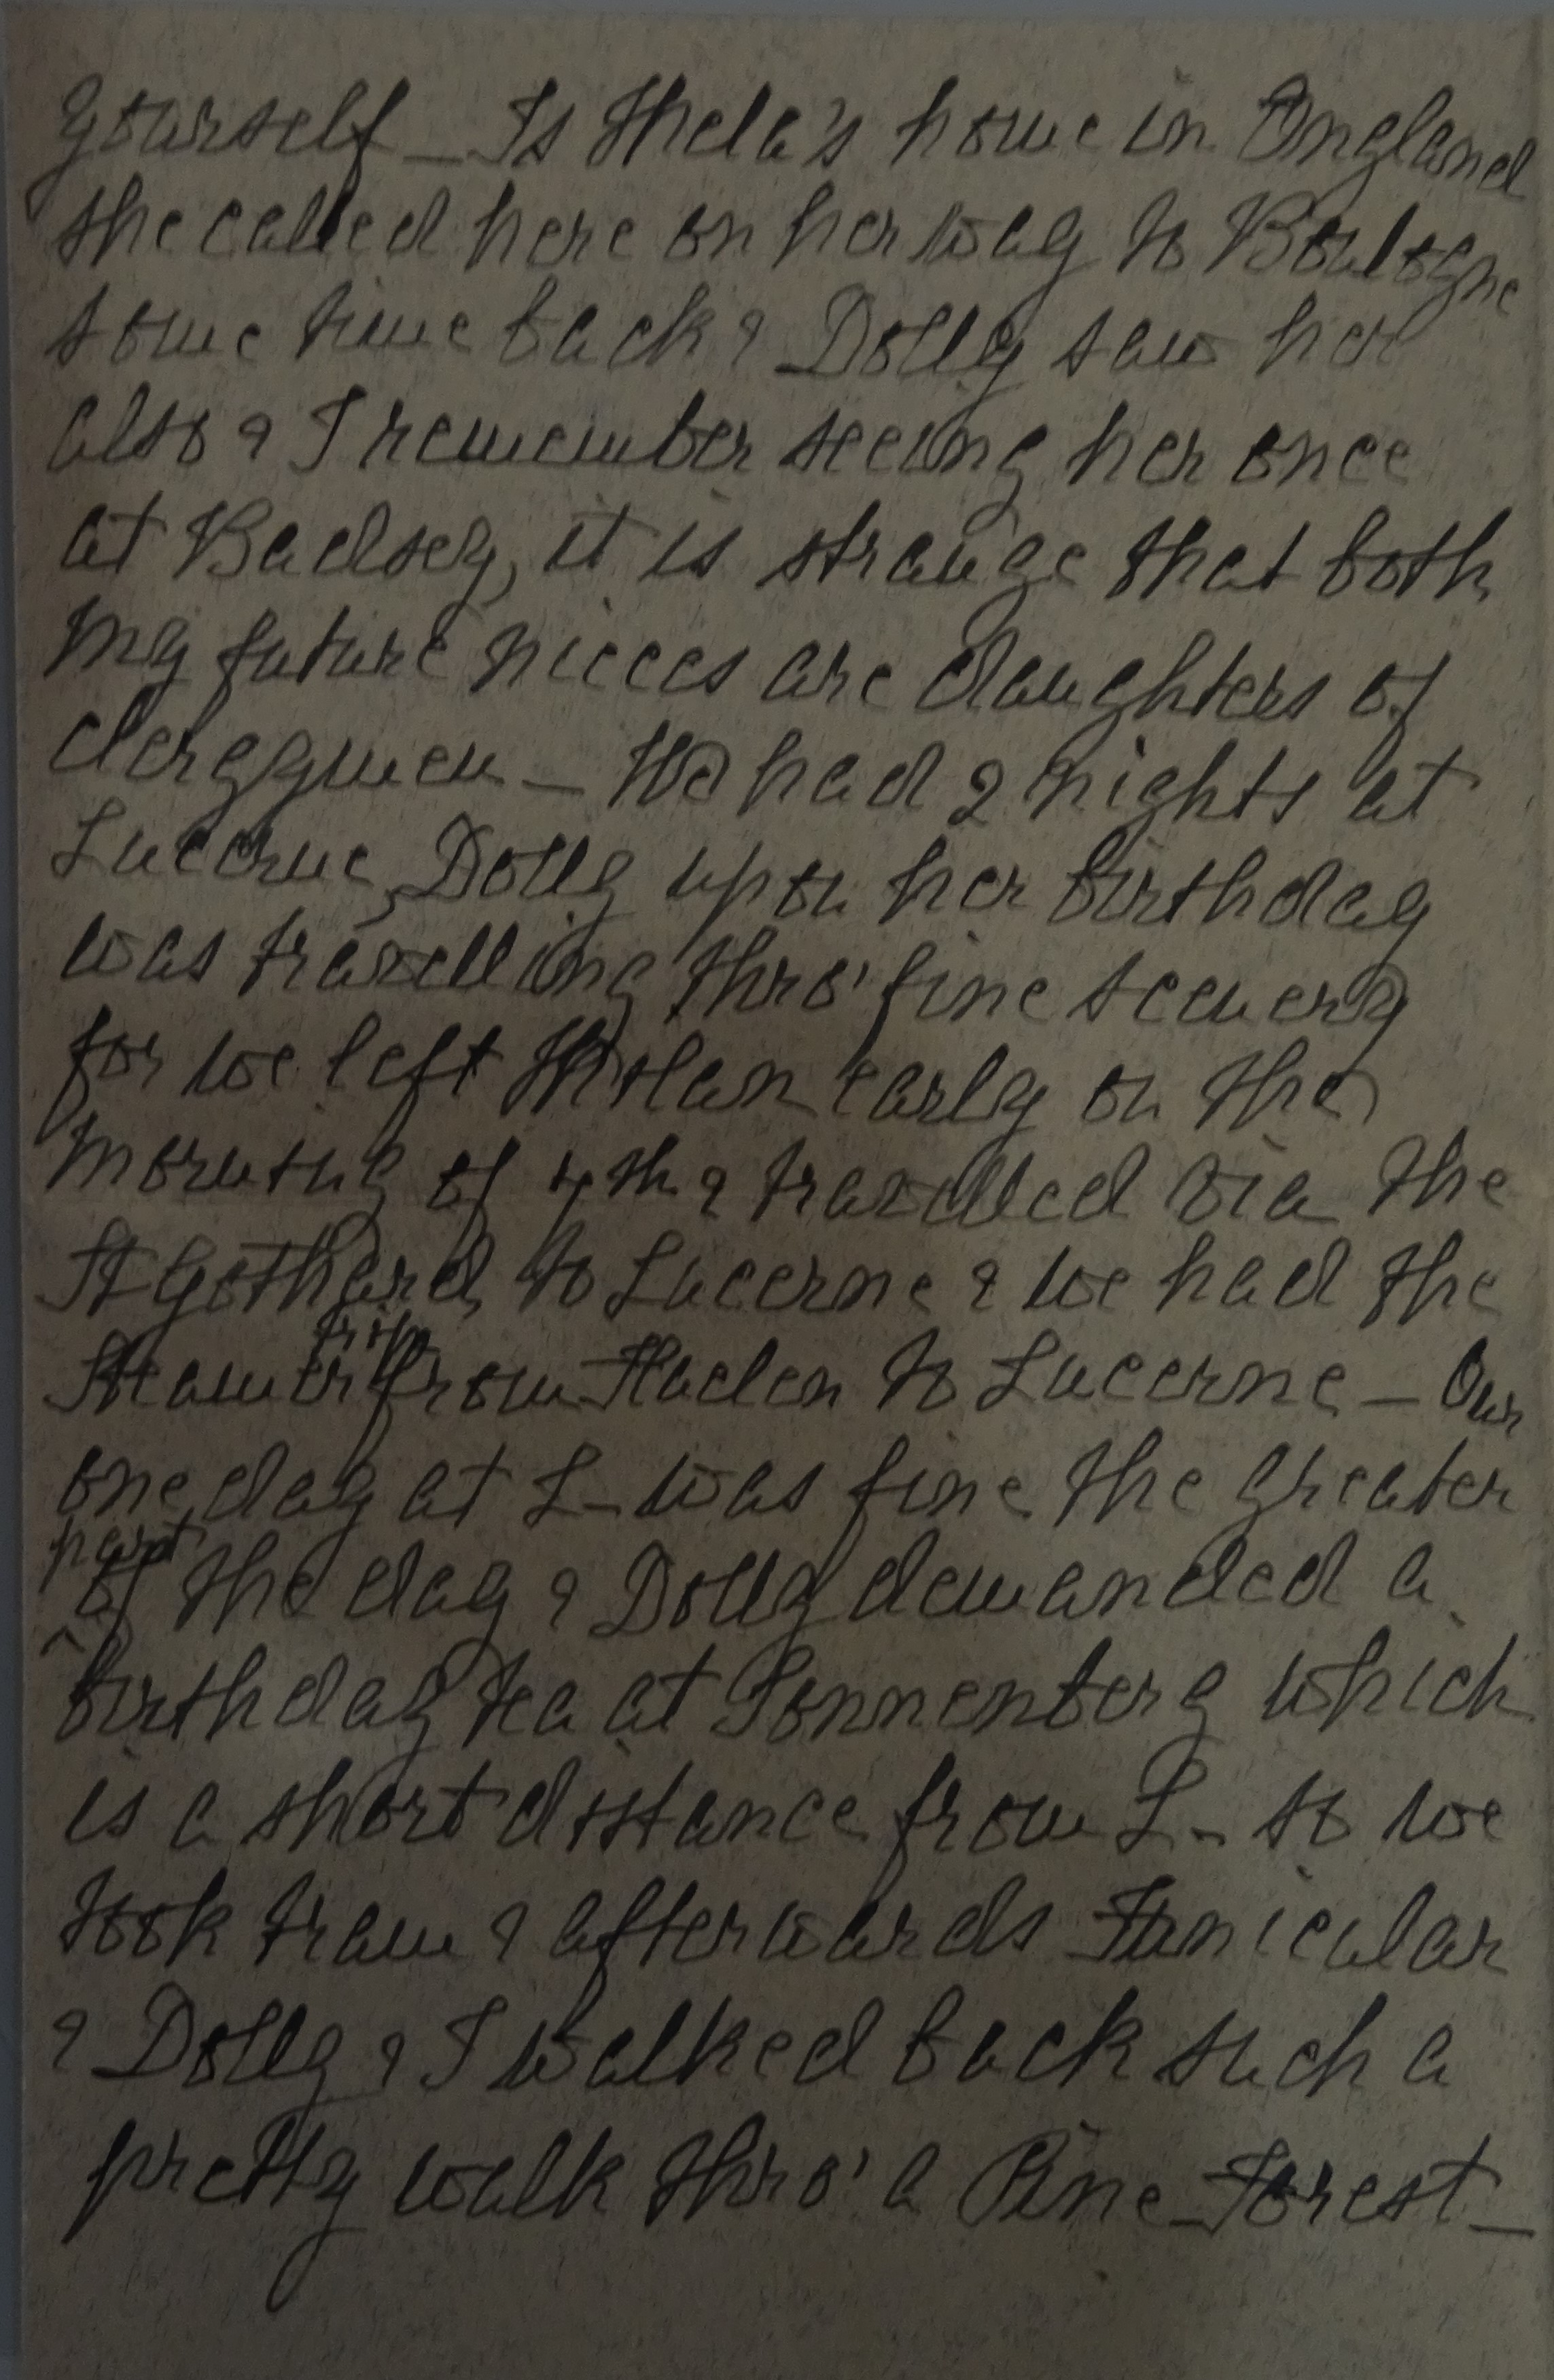 yourself – Is Thela's home in England
she called here on her way to Boulogne
some time back & Dolly saw her
also & I remember seeing her once
at Badsey, it is strange that both
my future nieces are daughters of
clergymen – We had 2 nights at
Lucerne, Dolly upon her birthday
was travelling thro' fine scenery
for we left Milan early on the
morning of 4th & travelled via the
St Gothard, to Lucerne & we had the
steamer trip from Fluelen to Lucerne – Our
one day at L– was fine the greater
part of the day & Dolly demanded a
birthday tea at Sonnenberg which
is a short distance from L– so we
took tram & afterwards Funicular
& Dolly & I walked back such a
pretty walk thro' a Pine Forest –